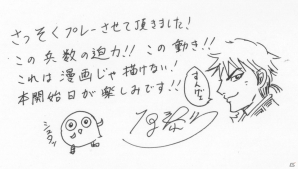 さっそくプレーさせて頂きました！
この兵数の迫力！！この動き！！
これは漫画じゃ描けない！
本開始日が楽しみです！！
すんげェ